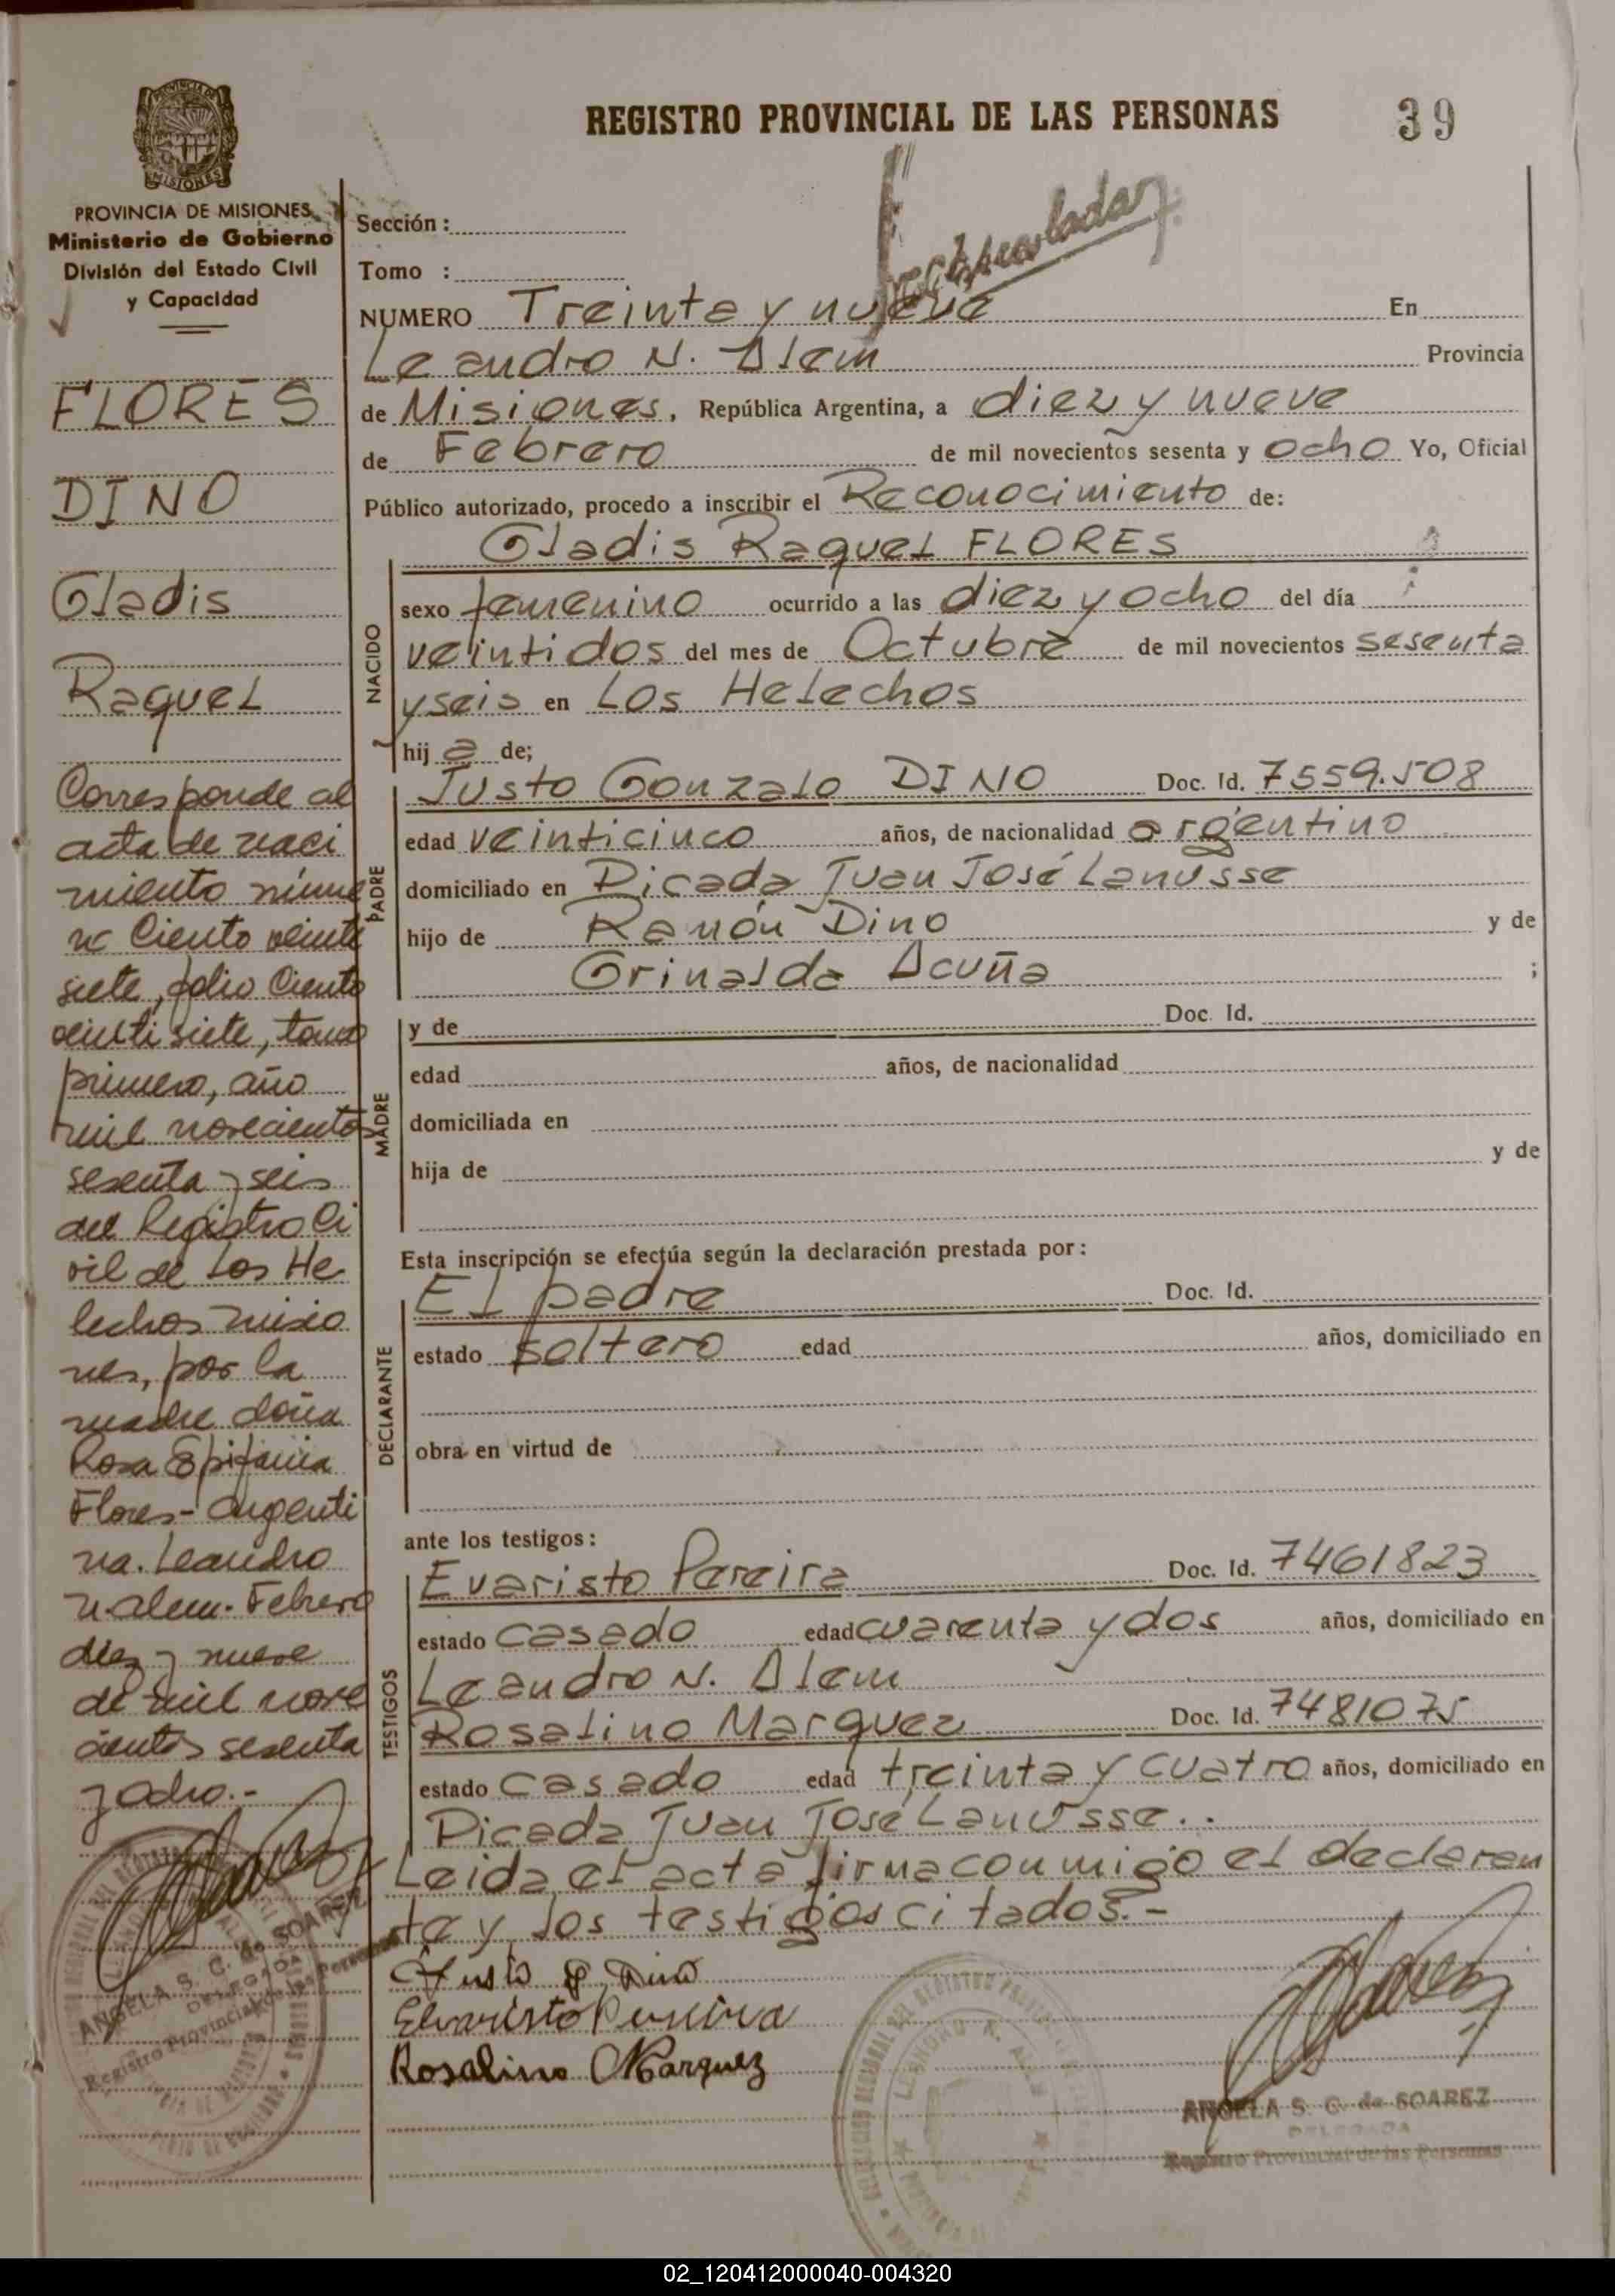 REGISTRO PROVINCIAL DE LAS PERSONAS
39
MISIONES
PROVINCIA DE MISIONES
Ministerio de Gobierno
División del Estado Civil
y Capacidad
FLORES
DINO
Gladis
Raquel
Corresponde al
acta de naci
miento núme
ro Ciento veinti
siete, folio Ciento
veinti siete, tomo
primero, año
mil novecientos
sesenta y seis
del Registro Ci
vil de Los He
lechos Misio
nes, por la
madre doña
Rosa Epifania
Flores - Argenti
na. Leandro
N. Alem. Febrero
diez y nueve
de mil nove
cientos sesenta
y ocho.-
ANGELA S. C. de SOAREZ
DELEGADA
Registro Provincial de las Personas
Sección :
Tomo :
NUMERO Treinta y nueve En
Leandro N. Alem Provincia
de Misiones, República Argentina, a diez y nueve
de Febrero de mil novecientos sesenta y ocho Yo, Oficial
Público autorizado, procedo a inscribir el Reconocimiento de:
Gladis Raquel FLORES
NACIDO
sexo femenino ocurrido a las diez y ocho del día
veintidos del mes de Octubre de mil novecientos sesenta
y seis en Los Helechos
hij a de;
PADRE
Justo Gonzalo DINO Doc. Id. 7559.508
edad veinticinco años, de nacionalidad argentino
domiciliado en Picada Juan José Lanusse
hijo de Ramón Dino y de
Grinalda Acuña ;
MADRE
y de Doc. Id.
edad años, de nacionalidad
domiciliada en
hija de y de
Esta inscripción se efectúa según la declaración prestada por:
DECLARANTE
El padre Doc. Id.
estado soltero edad años, domiciliado en
obra en virtud de
ante los testigos:
TESTIGOS
Evaristo Pereira Doc. Id. 7461823
estado casado edad cuarenta y dos años, domiciliado en
Leandro N. Alem
Rosalino Marquez Doc. Id. 7481075
estado casado edad treinta y cuatro años, domiciliado en
Picada Juan José Lanusse..
Leida el acta firma conmigo el declaran
te y los testigos citados.-
Justo G. Dino
Evaristo Pereira
Rosalino Marquez
ANGELA S. C. de SOAREZ
DELEGADA
Registro Provincial de las Personas
02_120412000040-004320